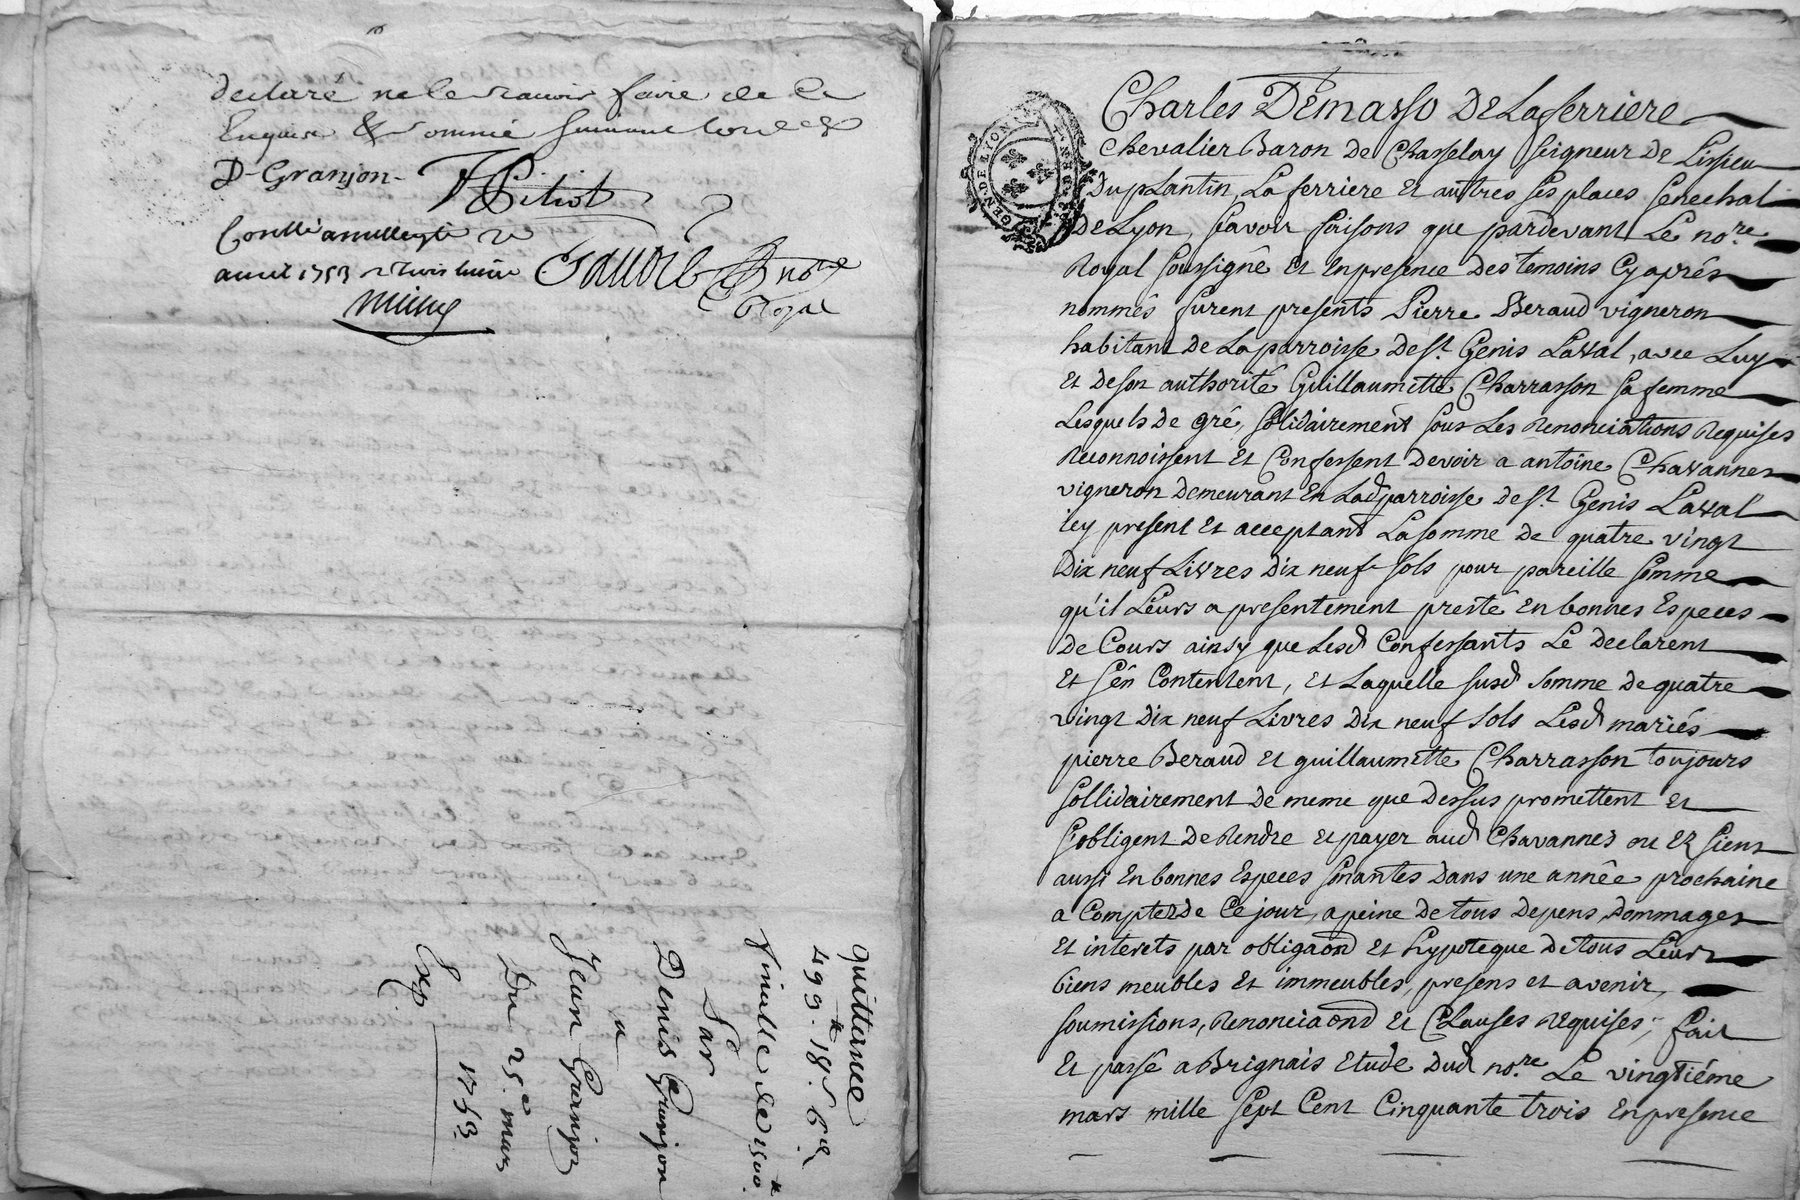 declaré ne le scavoir faire de ce
Enquis & sommé suivant l'ord
D-Granjon-
Pitiot
Conllé a
avril 1753
no.re
Royal
quittance
499.tt 18s. 6d
finalle de 1500.tt
Par
Sr Denis Granjon
a
Jean Granjon
Du 25.e mars
1753
Exp.
Charles Demasso De Laferriere
chevalier Baron de Chasselay seigneur de Lissieu
Du plantin, La ferriere et autres ses places senechal
De Lyon, scavoir faisons que pardevant Le no.re
Royal soussigné et en presence des temoins Cy aprés
nommés furent presents Pierre Beraud vigneron
habitant de La parroisse de st. Genis Laval, avec Luy
et de son authorité Guillaumette Charrasson sa femme
Lesquels de gré, sollidairement sous Les Renonciations Requises
Reconnoissent et Confessent devoir a antoine Chavannes
vigneron demeurant en Lad parroisse de st. Genis Laval
icy present et acceptant La somme de quatre vingt
dix neuf Livres dix neuf sols pour pareille somme
qu'il Leurs a presentement presté en bonnes Especes
de Cours ainsy que Lesd Confessants Le declarent
et s'en Contentent, et Laquelle susd somme de quatre
vingt dix neuf Livres dix neuf sols Lesd mariés
pierre Beraud et guillaumette Charrasson toujours
sollidairement de meme que dessus promettent et
s'obligent de Rendre et payer aud Chavannes ou ez siens
aussi en bonnes Especes sonantes dans une année prochaine
a Compter de Ce jour, a peine de tous depens, dommages
et interets par obligaond et hypoteque de tous Leurs
biens meubles et immeubles, presens et avenir,
soumissions, Renonciaond et Clauses Requises; fait
et passé a Brignais etude dud no.re Le vingtiéme
mars mille sept Cent Cinquante trois en presence